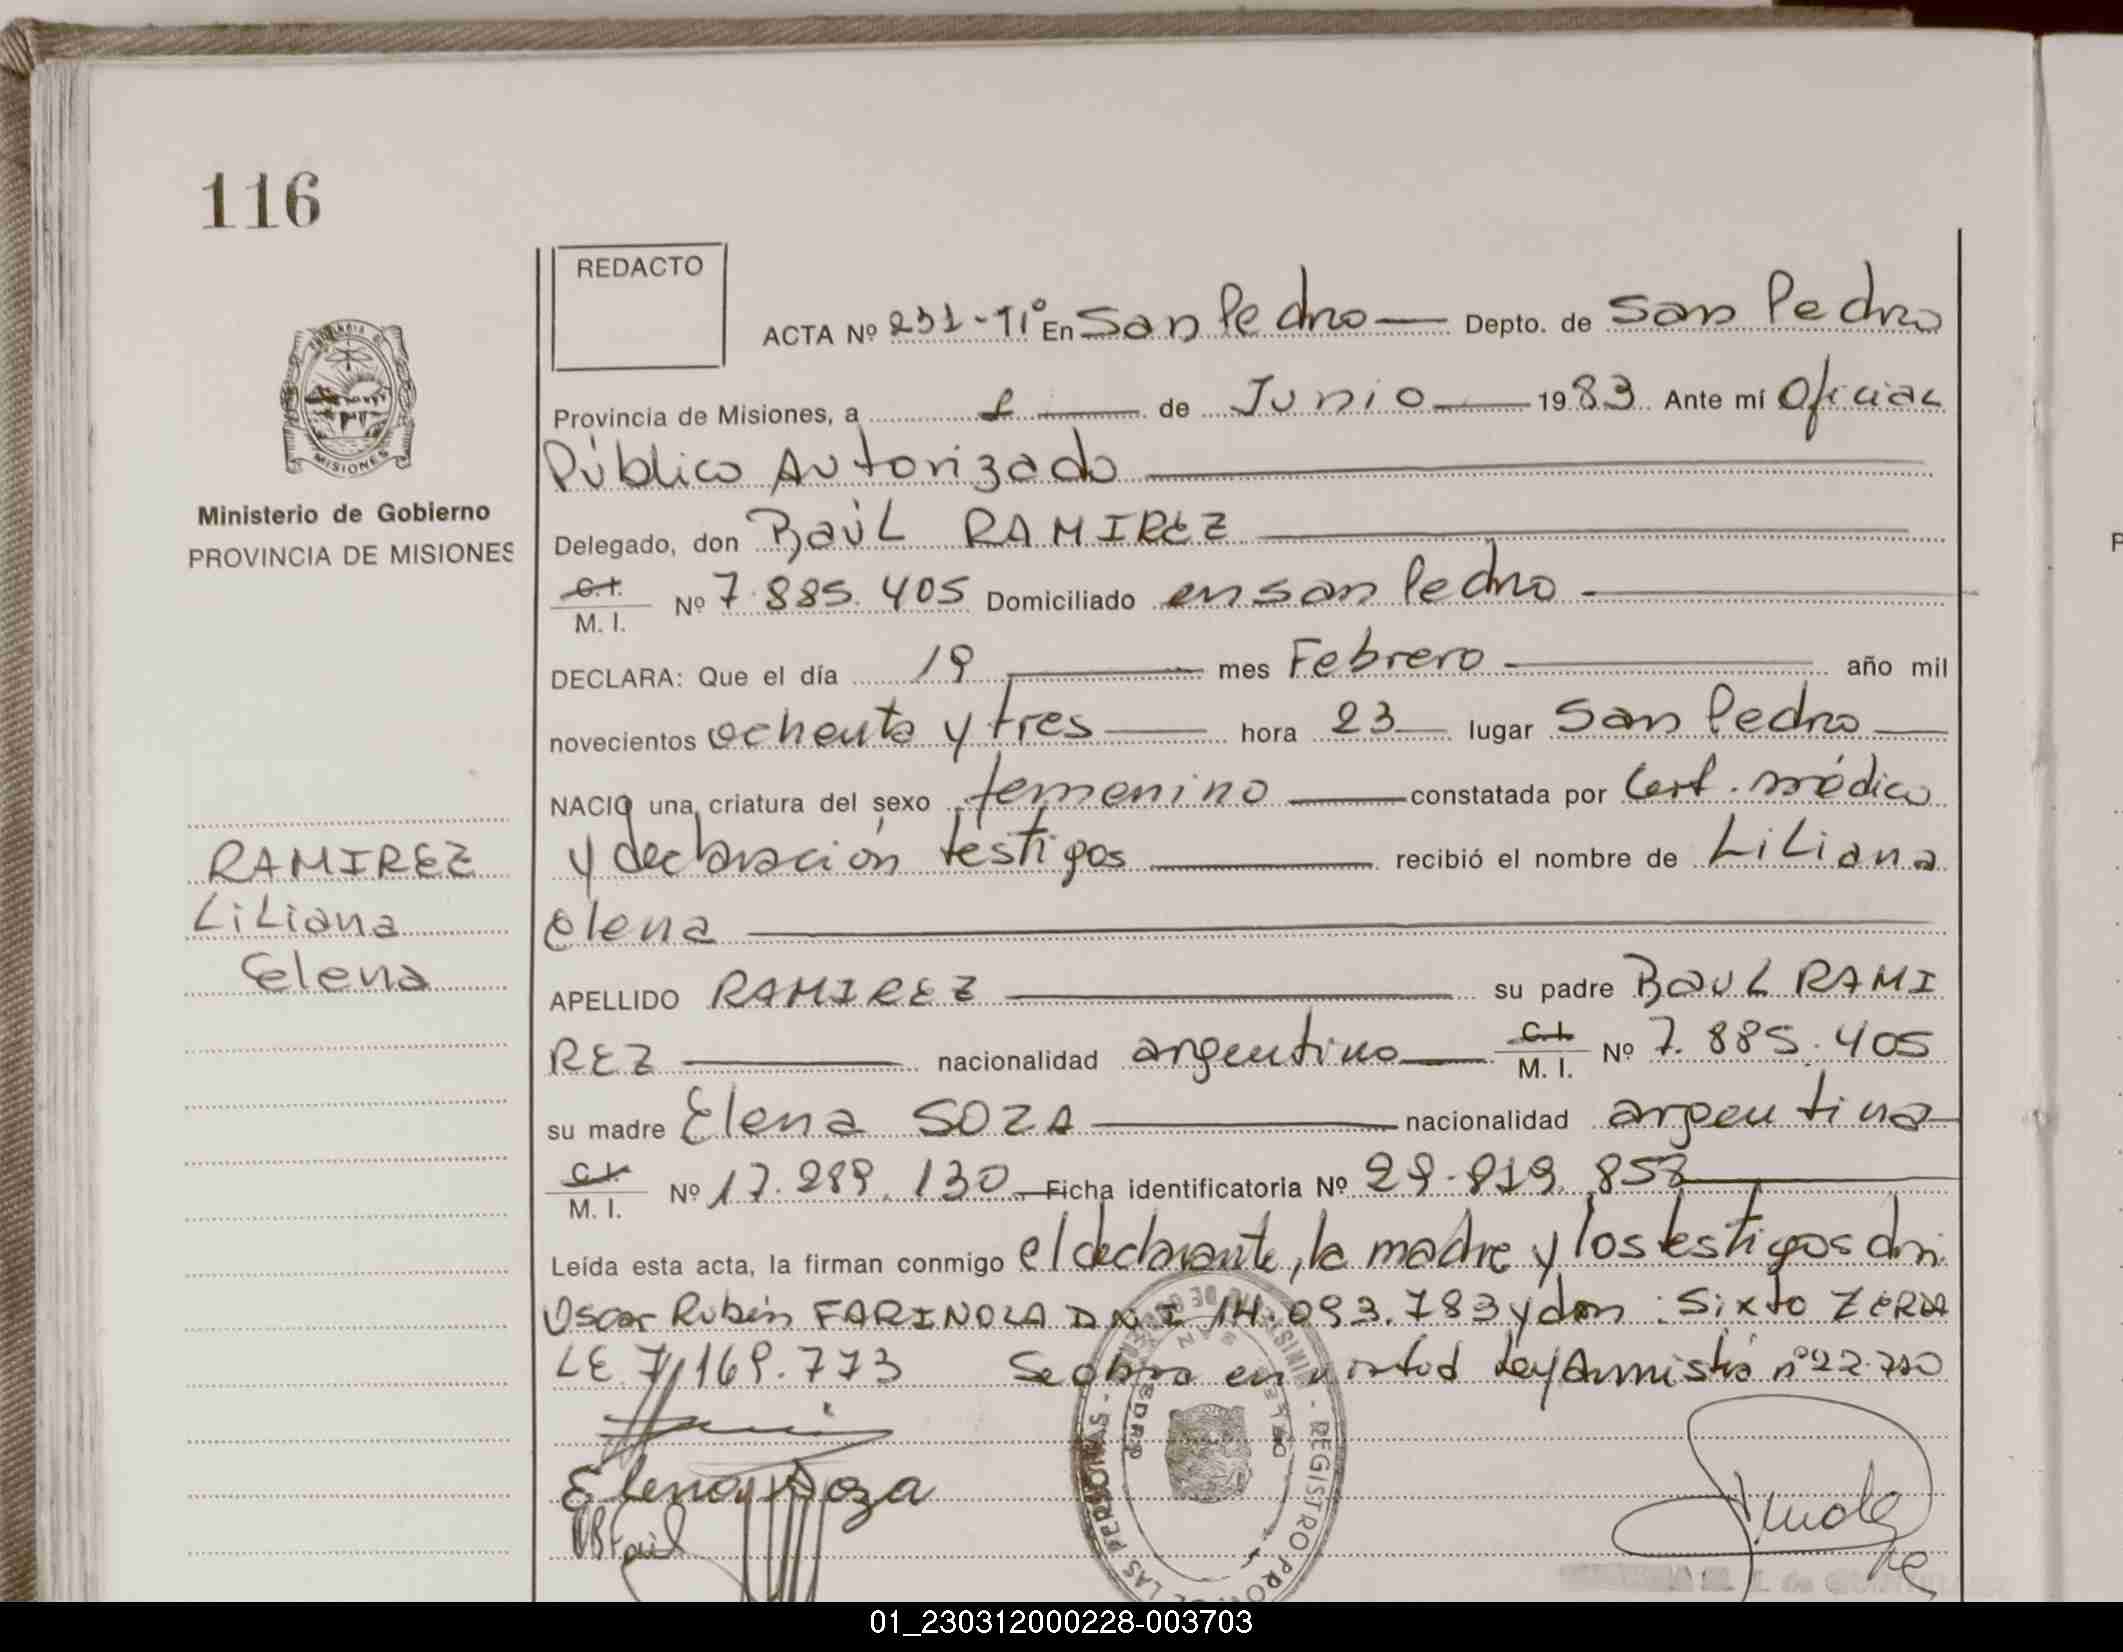 116
REDACTO
ACTA Nº 231-Tiº En San Pedro Depto. de San Pedro
Provincia de Misiones, a de Junio 1983 Ante mí Oficial
Público Autorizado
MISIONES
Ministerio de Gobierno
PROVINCIA DE MISIONES
Delegado, don Raúl RAMIREZ
C.I. M. I. Nº 7.885.405 Domiciliado en San Pedro
DECLARA: Que el día 19 mes Febrero año mil
novecientos ochenta y tres hora 23 lugar San Pedro
NACIO una criatura del sexo femenino constatada por Cert. médico
y declaración testigos recibió el nombre de Liliana
Elena
RAMIREZ
Liliana
Elena
APELLIDO RAMIREZ su padre Raul RAMI
REZ nacionalidad argentino C.I. M. I. Nº 7.885.405
su madre Elena SOZA nacionalidad argentina
C.I. M. I. Nº 17.289.130 Ficha identificatoria Nº 29.819.858
Leída esta acta, la firman conmigo el declarante, la madre y los testigos don:
Oscar Rubén FARINOLA D.N.I 14.093.783 y don: Sixto ZERDA
LE 7.169.773 Se obra en virtud Ley Amnistía nº 22.710
Elena Soza
MINISTERIO DE - REGISTRO PROV. DE LAS PERSONAS - SAN PEDRO
01_230312000228-003703